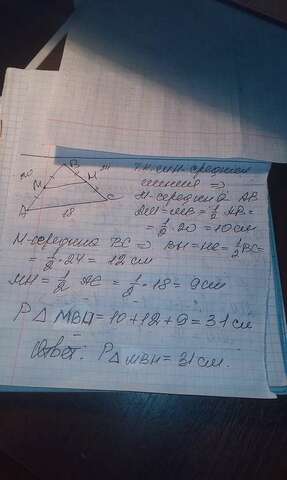 B
20
24
M
H
A
C
18
т.к. MH средняя
линия ⇒
M-середина AB
AM=MB=½AB=
=½·20=10см
H-середина BC ⇒ BH=HC=½BC=
=½·24=12см
MH=½AC=½·18=9см
P△MBH=10+12+9=31см
Ответ: P△MBH=31см.